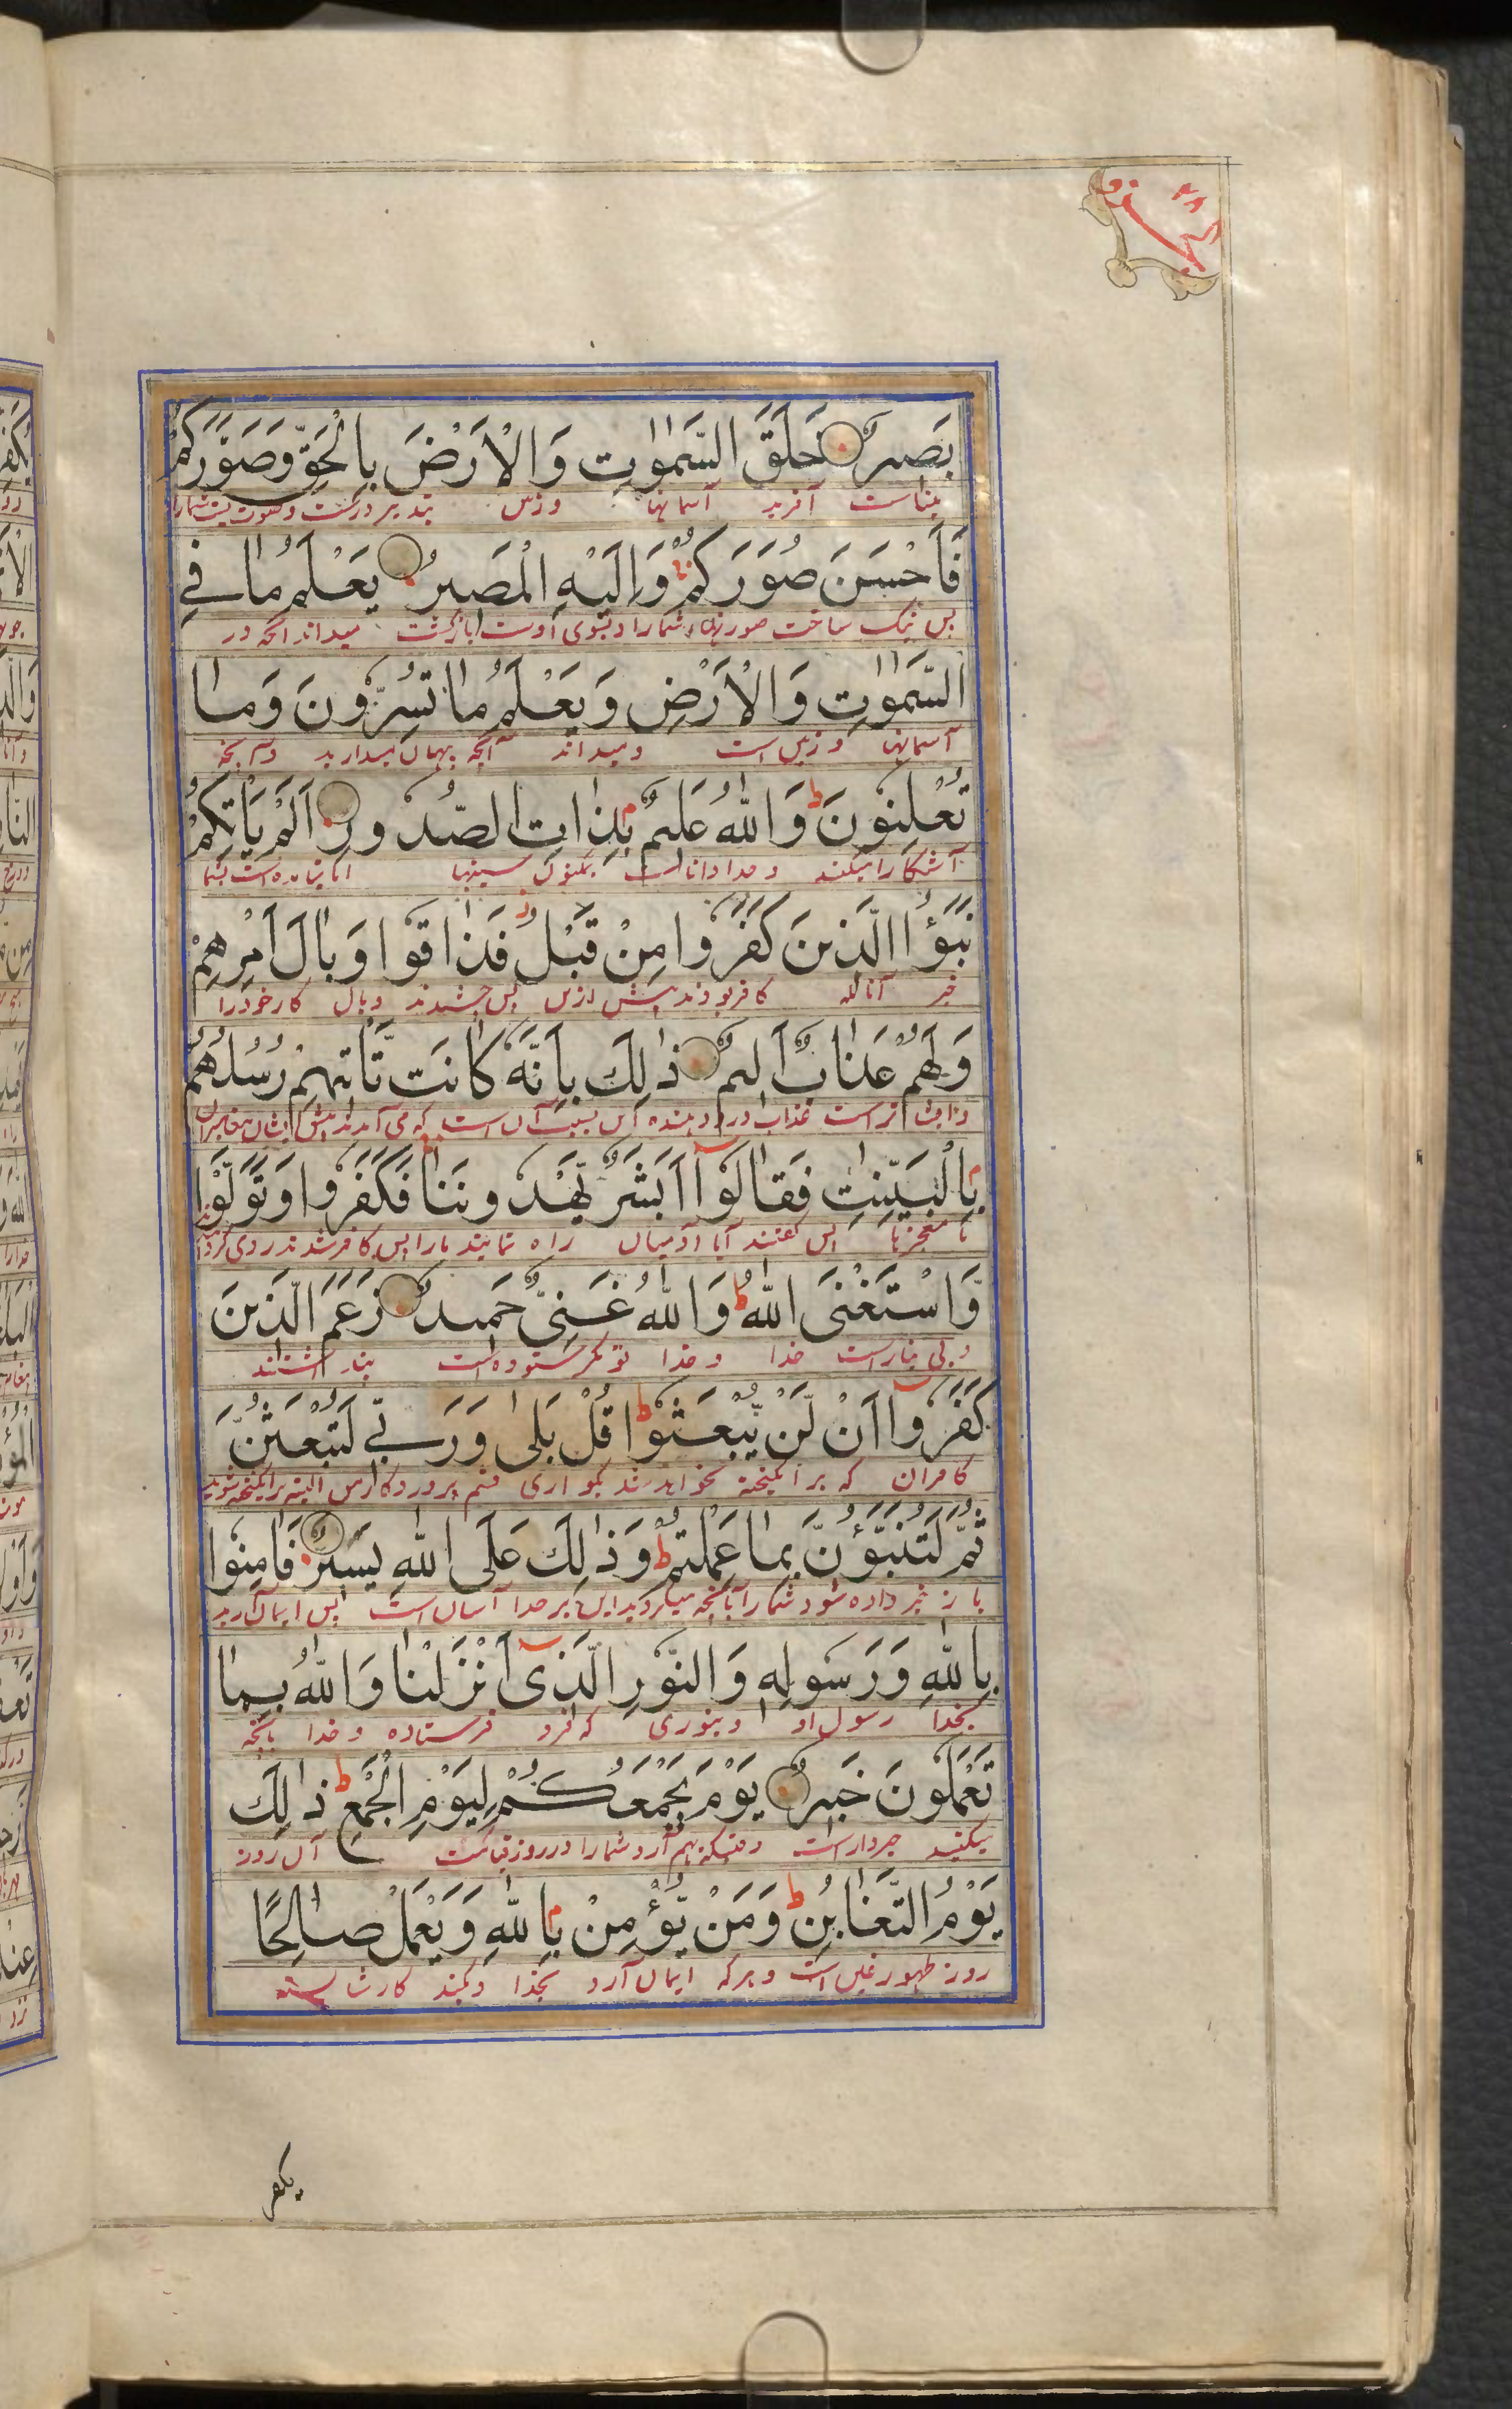 الجزو ۲۸
بَصِيرٌ خَلَقَ السَّمٰوٰتِ وَالْاَرْضَ بِالْحَقِّ وَصَوَّرَكُمْ
بیناست آفرید آسمانها وزمین
فَاَحْسَنَ صُوَرَكُمْ وَاِلَيْهِ الْمَصِيرُ يَعْلَمُ مٰا فِي
پس نیک ساخت صورتهای شمارا وبسوی اوست بازگشت میداند آنچه در
السَّمٰوٰتِ وَالْاَرْضِ وَيَعْلَمُ مٰا تُسِرُّونَ وَمٰا
آسمانها و زمین است ومیداند آنچه پنهان میدارید وآنچه
تُعْلِنُونَ ط وَاللّٰهُ عَلِيمٌ بِذٰاتِ الصُّدُورِ اَلَمْ يَاْتِكُمْ
آشکارا میکنید وخدا دانا است بمکنون سینها آیا نیامده است بشما
نَبَؤُا الَّذِينَ كَفَرُوا مِنْ قَبْلُ فَذٰاقُوا وَبٰالَ اَمْرِهِمْ
خبر آنانکه کافر بودند پیش ازین پس چشیدند وبال کار خود را
وَلَهُمْ عَذٰابٌ اَلِيمٌ ذٰلِكَ بِاَنَّهُ كٰانَت تَّاْتِيهِمْ رُسُلُهُمْ
عذاب دردهنده این بسبب آن است که می آمدند پیش ایشان پیغامبران
بِالْبَيِّنٰتِ فَقٰالُوٓا اَبَشَرٌ يَّهْدُونَنٰا فَكَفَرُوا وَتَوَلَّوْا
با معجزها پس گفتند آیا آدمیان راه نمایند مارا پس کافر شدند وروی گردانیدند
وَّاسْتَغْنَى اللّٰهُ ط وَاللّٰهُ غَنِيٌّ حَمِيدٌ زَعَمَ الَّذِينَ
وبی نیاز است خدا وخدا توانگر ستوده است پنداشتند
كَفَرُوٓا اَنْ لَّنْ يُّبْعَثُوا ط قُلْ بَلٰى وَرَبِّي لَتُبْعَثُنَّ
کافران که برانگیخته نخواهند شد بگو آری قسم پروردگار من البته برانگیخته شوید
ثُمَّ لَتُنَبَّؤُنَّ بِمٰا عَمِلْتُمْ ط وَذٰلِكَ عَلَى اللّٰهِ يَسِيرٌ فَاٰمِنُوا
باز خبر داده شود شمارا بآنچه میکردید این بر خدا آسان است پس ایمان آرید
بِاللّٰهِ وَرَسُولِهِ وَالنُّورِ الَّذِىٓ اَنْزَلْنٰا وَاللّٰهُ بِمٰا
بخدا رسول او وبنوری که فرو فرستاده وخدا بآنچه
تَعْمَلُونَ خَبِيرٌ يَوْمَ يَجْمَعُكُمْ لِيَوْمِ الْجَمْعِ ط ذٰلِكَ
میکنید خبردار است وقتیکه بهم آرد شمارا در روز قیامت آن روز
يَوْمُ التَّغٰابُنِ ط وَمَنْ يُّؤْمِنْ بِاللّٰهِ وَيَعْمَلْ صٰالِحًا
روز ظهور غبن است وهرکه ایمان آرد بخدا وبکند کار شایسته
یکفر